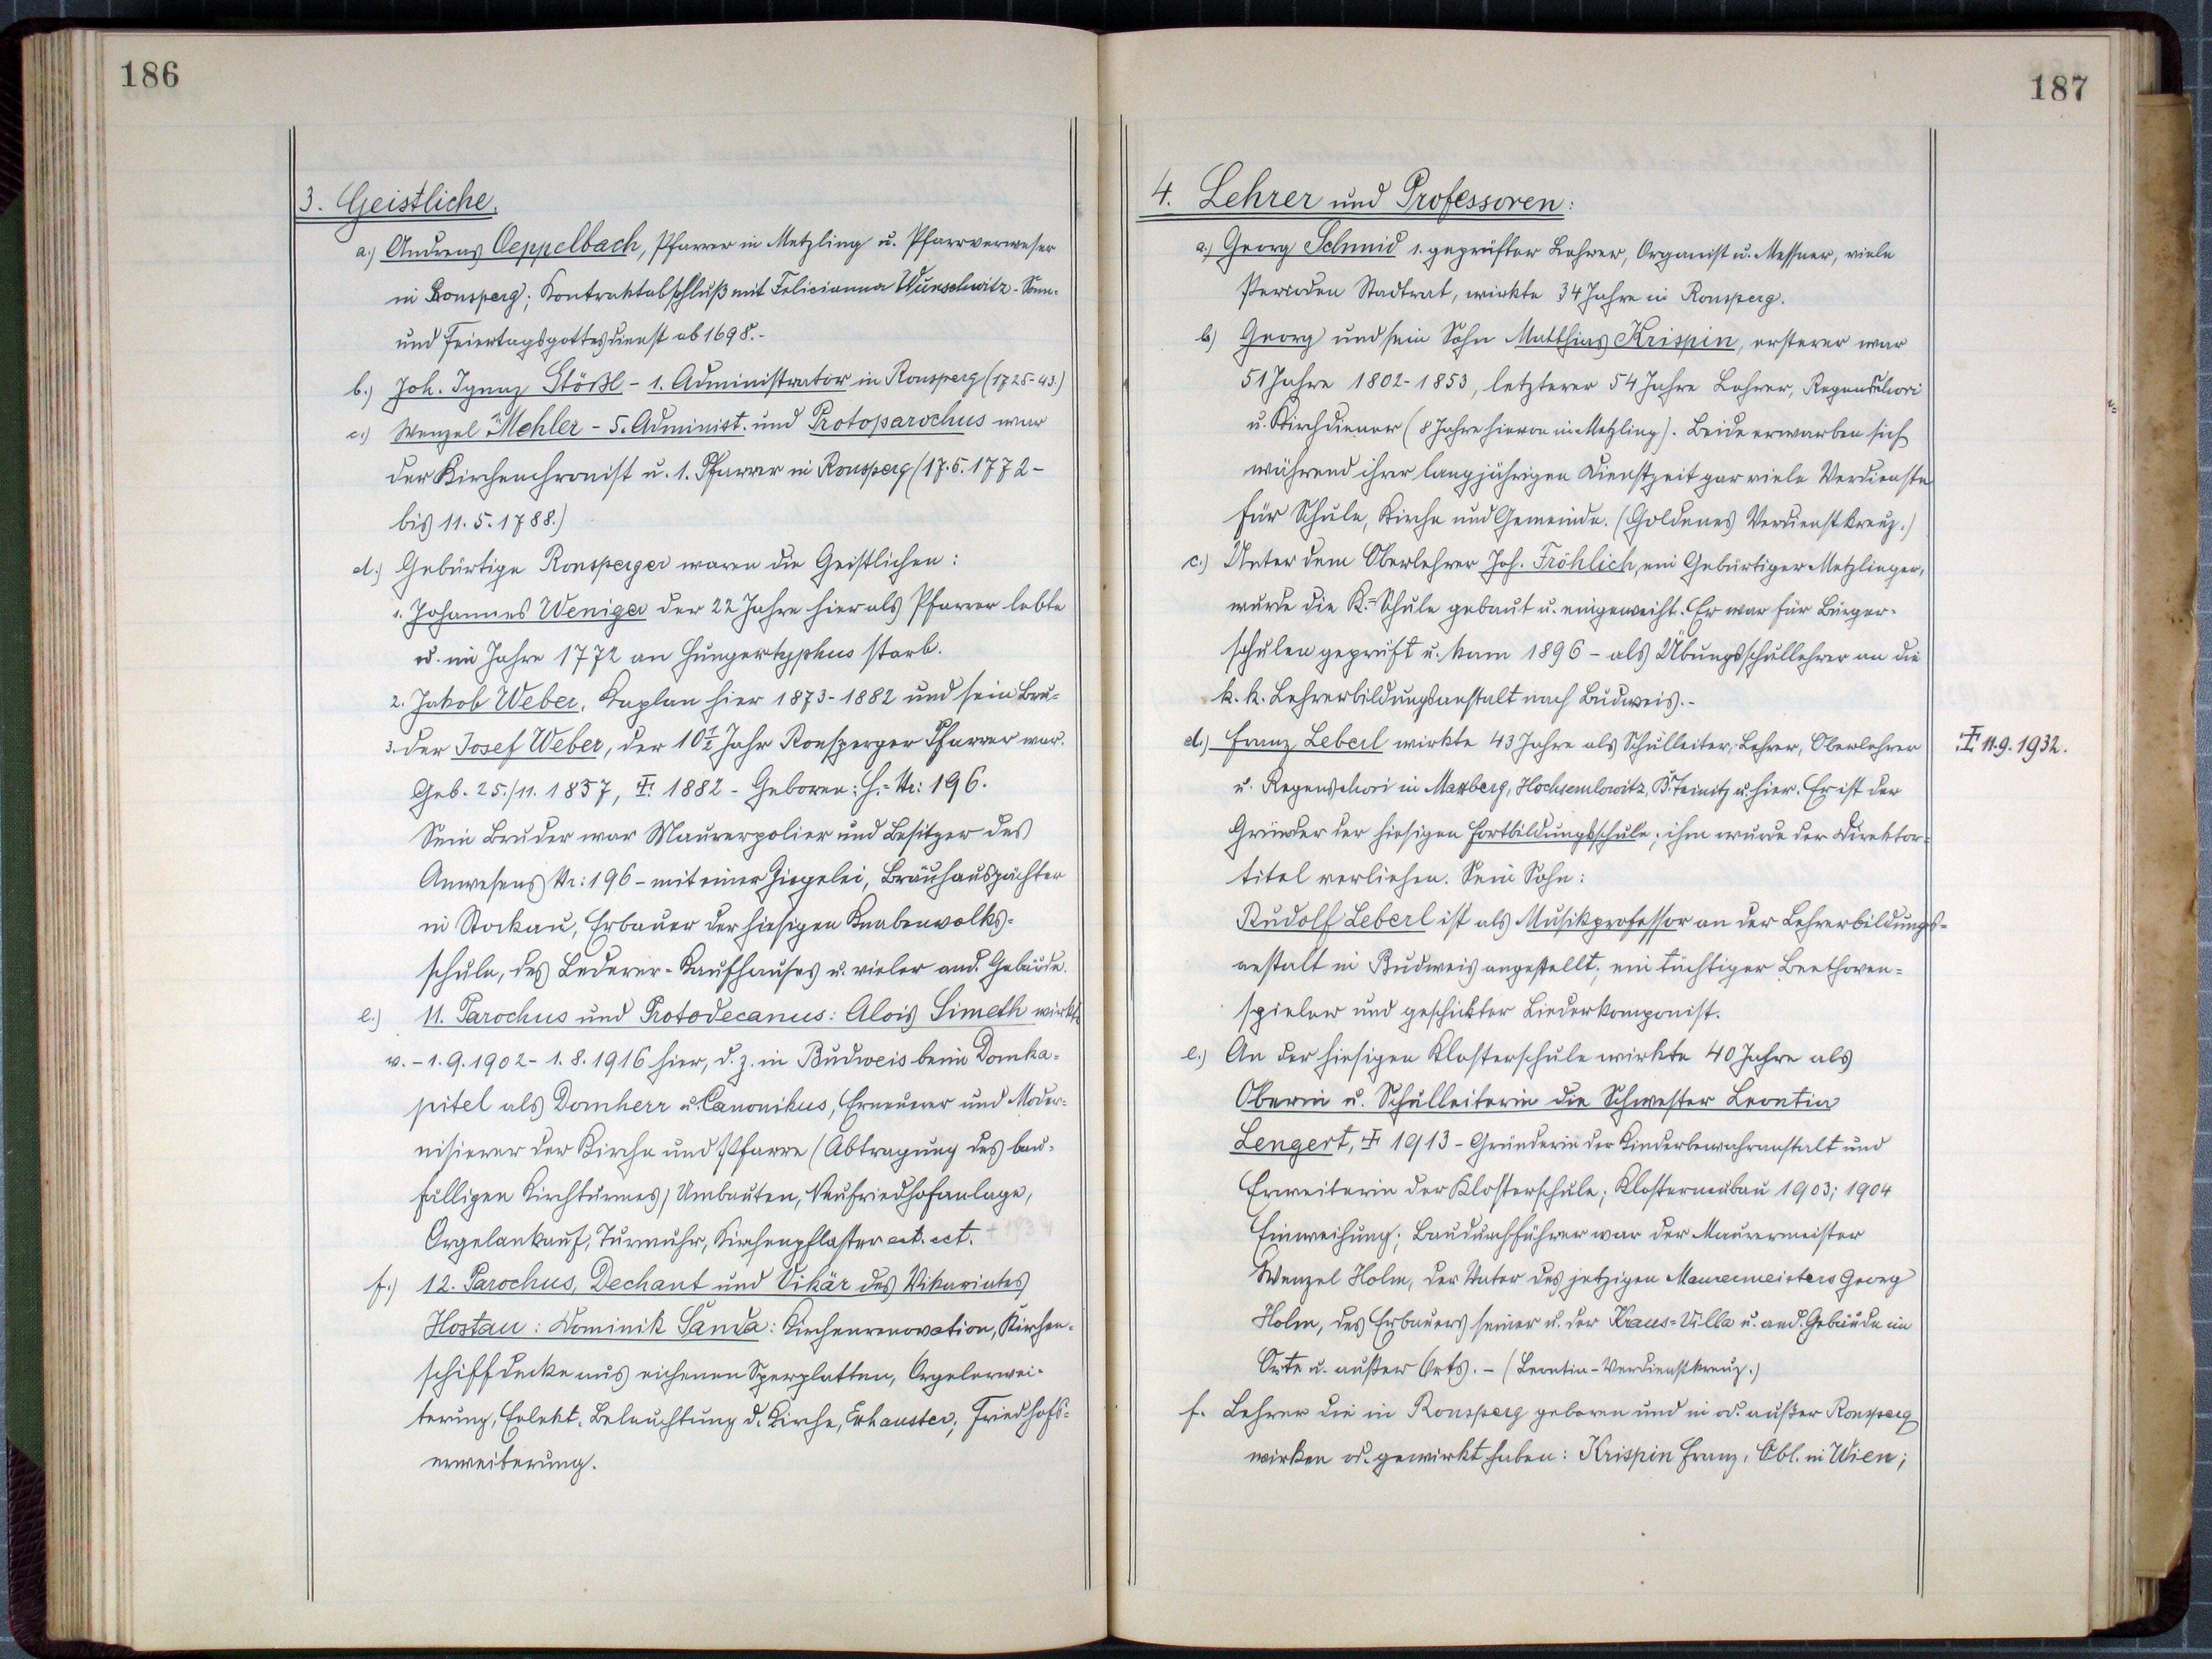 186
3. Geistliche.
a.) Andreas Oeppelbach, Pfarrer in Metzling u. Pfarrverweser
in Ronsperg; Kontraktabschluß mit Felicianna Wunschwitz - Sonn-
und Feiertagsgottesdienst ab 1698.-
b.) Joh. Ignaz Stößl - 1. Administrator in Ronsperg (1725-43.)
c.) Wenzel Mehler - 5. Administ. und Protoparochus war
der Kirchenchronist u. 1. Pfarrer in Ronsperg (17.5.1772-
bis 11.5.1788.)
d.) Gebürtige Ronsperger waren die Geistlichen:
1. Johannes Weniger der 22 Jahre hier als Pfarrer lebte
u. im Jahre 1772 an Hungertyphus starb.
2. Jakob Weber, Kaplan hier 1873-1882 und sein Bru-
3. der Josef Weber, der 10 1/2 Jahr Ronsperger Pfarrer war.
Geb. 25./11. 1837, ‡ 1882 - Geboren: H.-Nr: 196.
Sein Bruder war Maurerpolier und Besitzer des
Anwesens Nr: 196 - mit einer Ziegelei, Bräuhauspächter
in Stockau, Erbauer der hiesigen Knabenvolks-
schule, des Lederer-Kaufhauses u. vieler and. Gebäude.
e.) 11. Parochus und Protodecanus: Alois Simeth wirkte
v. - 1.9.1902 - 1.8.1916 hier, d.z. in Budweis beim Domka-
pitel als Domherr u. Canonikus, Erneuerer und Moder-
nisierer der Kirche und Pfarre (Abtragung des bau-
fälligen Kirchturmes) Umbauten, Neufriedhofanlage,
Orgelankauf, Turmuhr, Kirchenpflaster ect. ect.
f.) 12. Parochus, Dechant und Vikär des Vikariates
Hostau: Dominik Šanda: Kirchenrenovation, Kirchen-
schiffdecke aus eichenen Sperplatten, Orgelerwei-
terung, Elekt. Beleuchtung d. Kirche, Exhauster, Friedhofs-
erweiterung.
187
4. Lehrer und Professoren:
a.) Georg Schmid 1. geprüfter Lehrer, Organist u. Messner, viele
Perioden Stadtrat, wirkte 34 Jahre in Ronsperg.
b.) Georg und sein Sohn Matthias Krispin, ersterer war
51 Jahre 1802-1853, letzterer 54 Jahre Lehrer, Regenschori
u. Kirchdiener (8 Jahre hievon in Metzling). Beide erwarben sich
während ihrer langjährigen Dienstzeit gar viele Verdienste
für Schule, Kirche und Gemeinde. (Goldenes Verdienstkreuz.)
c.) Unter dem Oberlehrer Joh. Fröhlich, ein Gebürtiger Metzlinger,
wurde die K.-Schule gebaut u. eingeweiht. Er war für Bürger-
schulen geprüft u. kam 1896 - als Übungsschullehrer an die
k.k. Lehrerbildungsanstalt nach Budweis.-
d.) Franz Leberl wirkte 43 Jahre als Schulleiter, Lehrer, Oberlehrer
‡ 11.9.1932.
u. Regenschori in Maxberg, Hochsemlowitz, B. Teinitz u. hier. Er ist der
Gründer der hiesigen Fortbildungsschule; ihm wurde der Direktor-
titel verliehen. Sein Sohn:
Rudolf Leberl ist als Musikprofessor an der Lehrerbildungs-
anstalt in Budweis angestellt; ein tüchtiger Beethoven-
spieler und geschickter Liederkomponist.
e.) An der hiesigen Klosterschule wirkte 40 Jahre als
Oberin u. Schulleiterin die Schwester Leontia
Lengert, ‡ 1913 - Gründerin der Kinderbewahranstalt und
Erweiterin der Klosterschule; Klosterneubau 1903; 1904
Einweihung; Baudurchführer war der Maurermeister
Wenzel Holm, der Vater des jetzigen Maurermeisters Georg
Holm, des Erbauers seiner u. der Kraus-Villa u. and. Gebäude im
Orte u. außer Orts. - (Leontia-Verdienstkreuz.)
f. Lehrer die in Ronsperg geboren und in od. außer Ronsperg
wirken od. gewirkt haben: Krispin Franz, Obl. in Wien;